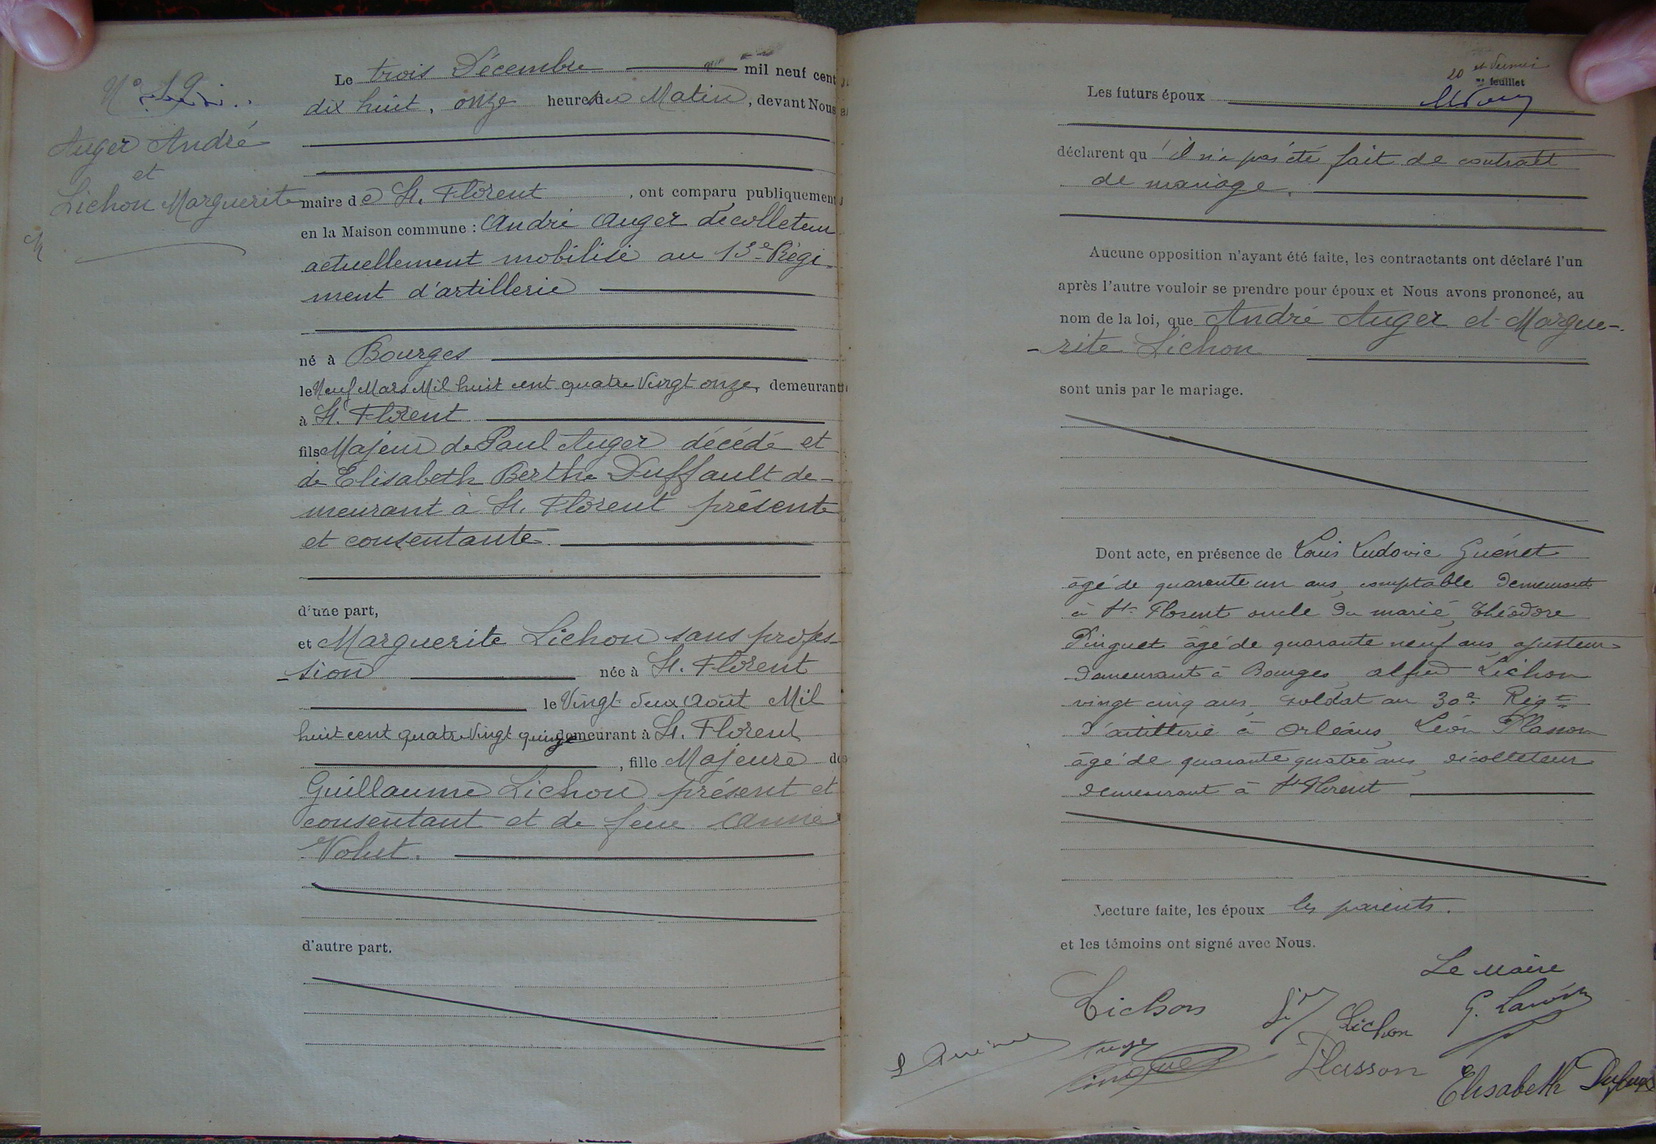 N° 19
Auger André
et
Lichon Marguerite
Le trois Décembre mil neuf cent
dix huit, onze heures du Matin, devant Nous
maire de St. Florent, ont comparu publiquement
en la Maison commune : André Auger décolleteur
actuellement mobilisé au 13e Régi-
ment d'artillerie
né à Bourges
le Neuf Mars Mil huit cent quatre Vingt onze, demeurant
à St. Florent
fils Majeur de Paul Auger décédé et
de Elisabeth Berthe Duffault de-
meurant à St. Florent présente
et consentante.
d'une part,
et Marguerite Lichon sans profes-
-sion née à St. Florent
le Vingt deux Août Mil
huit cent quatre Vingt quinze demeurant à St. Florent
, fille Majeure de
Guillaume Lichon présent et
consentant et de feue Anne
Volut.
d'autre part.
20 et dernier
feuillet
Les futurs époux
déclarent qu'il n'a pas été fait de contrat
de mariage.
Aucune opposition n'ayant été faite, les contractants ont déclaré l'un
après l'autre vouloir se prendre pour époux et Nous avons prononcé, au
nom de la loi, que André Auger et Margue-
-rite Lichon
sont unis par le mariage.
Dont acte, en présence de Louis Ludovic Guénet
âgé de quarante un ans, comptable demeurant
à St Florent oncle du marié, Théodore
Pinguet âgé de quarante neuf ans ajusteur
demeurant à Bourges, alfred Lichon
vingt cinq ans, soldat au 30e Regt
d'artillerie à Orléans, Léon Plasson
âgé de quarante quatre ans, décolleteur
demeurant à St Florent
Lecture faite, les époux les parents.
et les témoins ont signé avec Nous.
Le Maire
Lichon
Lichon
Auger
Plasson
Elisabeth